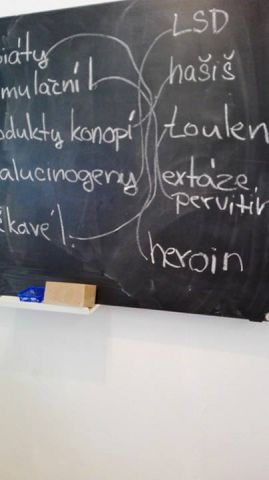 iáty
mulační l.
odukty konopí
alucinogeny
kavé l.
LSD
hašiš
toulen
extáze,
pervitin
heroin